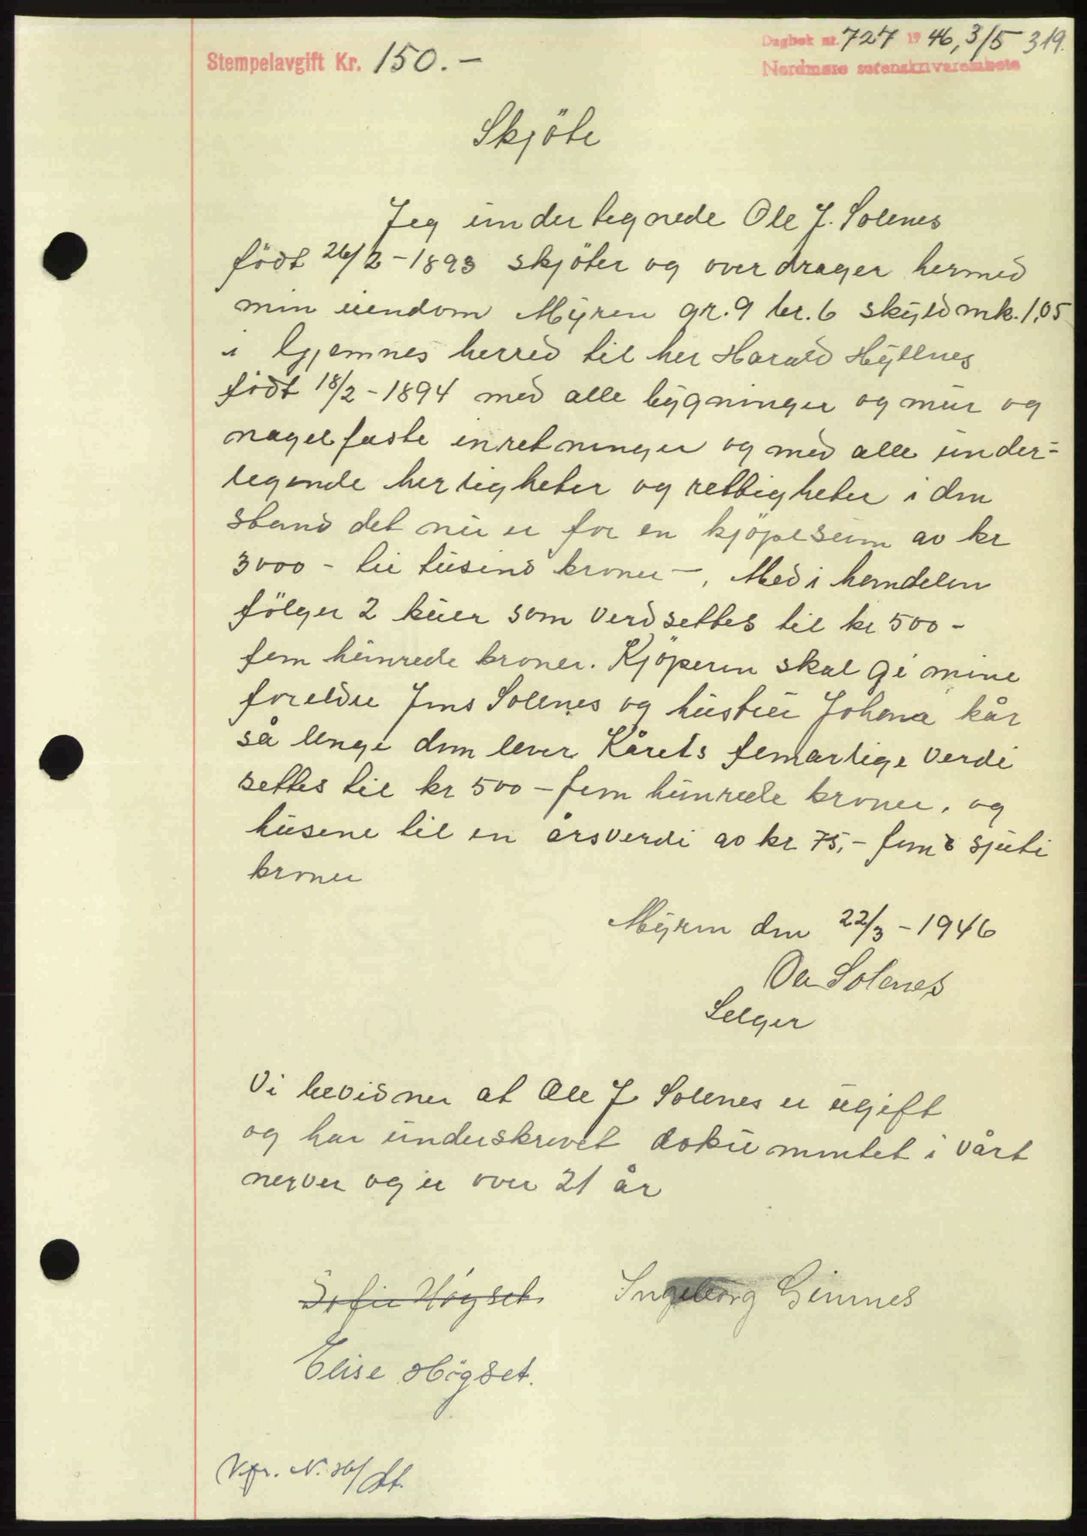 Stempelavgift Kr. 150.-
Dagbok nr. 727 1946, 3/5 319.
Nordmøre sorenskriverembete
Skjöte
Jeg undertegnede Ole J. Solenes
födt 26/2-1893 skjöter og overdrager hermed
min eiendom Myren gr. 9 br. 6 skyld mk. 1,05
i Gjemnes herred til her Harald Hyllnes
födt 18/2-1894 med alle bygninger og mur og
nagelfaste inretninger og med alle under-
legende herligheter og rettigheter i den
stand det nu er for en kjöpesum av kr
3000 - tre tusend kroner -. Med i handelen
fölger 2 kuer som verdsettes til kr 500 -
fem hunrede kroner. Kjöperen skal gi mine
foreldre Jens Solenes og hustru Johana kår
så lenge dem lever Kårets femarlige verdi
settes til kr 500 - fem hunrede kroner. og
husene til en årsverdi av kr 75,- fem & sjuti
kroner
Myren den 22/3-1946
Ole Solenes
Selger
Vi bevidner at Ole J. Solenes er ugift
og har underskrevet dokummentet i vårt
nerver og er over 21 år
Sofie Høgset. Ingeborg Gimnes
Elise Högset.
Vfr. N.